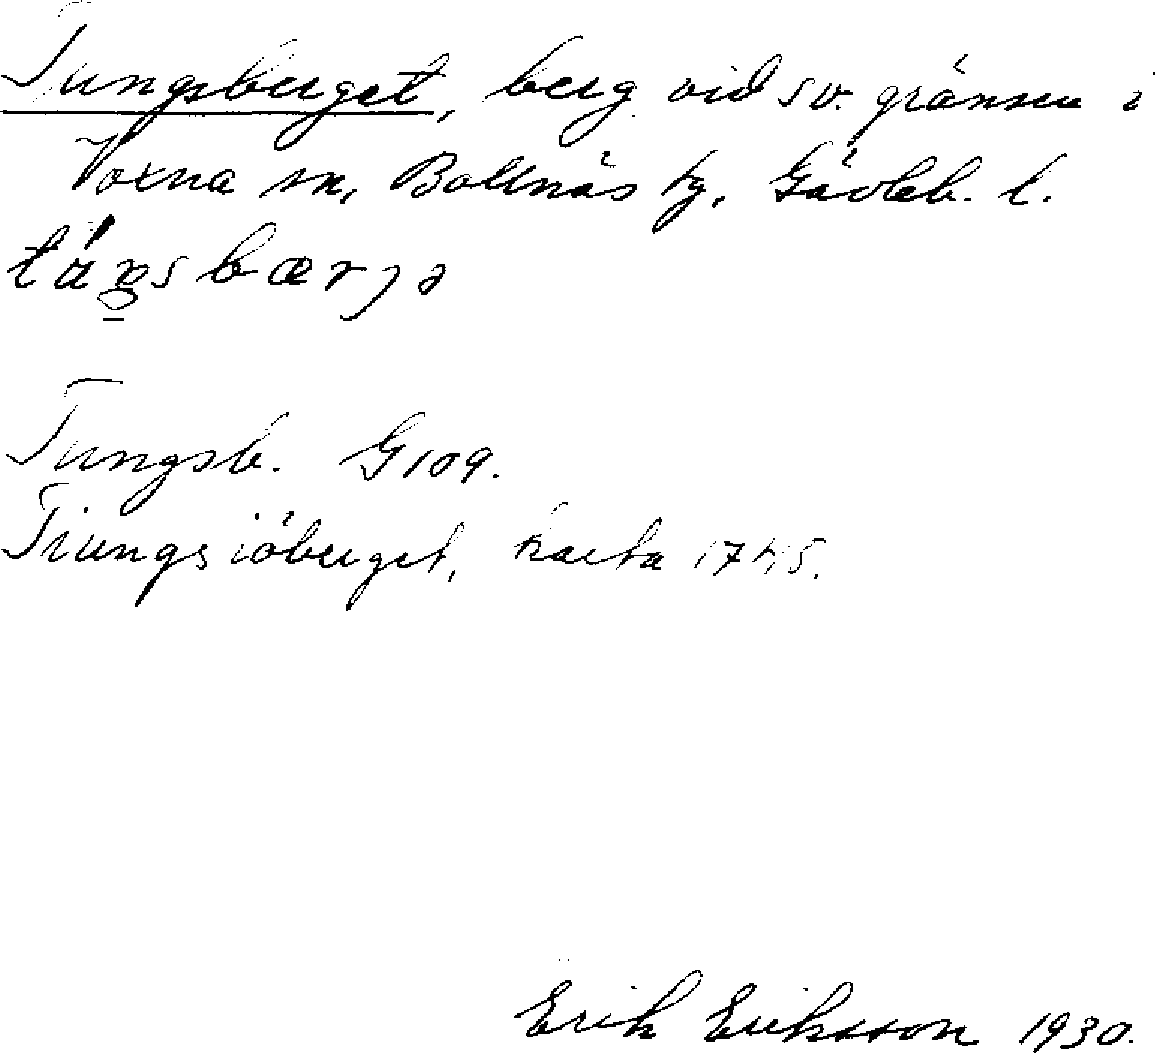 Tungsberget, berg vid sv. gränsen i
Voxna sn, Bollnäs tg, Gävleb. l.
Tungsb. G109.
Tiungsiöberget, karta 1745.
Erik Eriksson 1930.